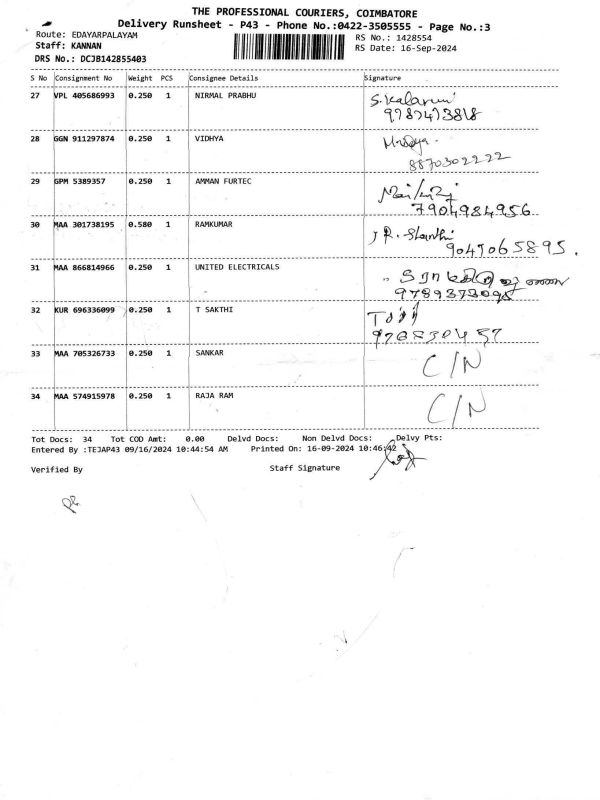 THE PROFESSIONAL COURIERS, COIMBATORE
Delivery Runsheet - P43 - Phone No.:0422-3505555 - Page No.:3
Route: EDAYARPALAYAM
RS No.: 1428554
Staff: KANNAN
RS Date: 16-Sep-2024
DRS No.: DCJB142855403
S No Consignment No Weight PCS Consignee Details Signature
27 VPL 405686993 0.250 1 NIRMAL PRABHU
28 GGN 911297874 0.250 1 VIDHYA
8870302222
29 GPM 5389357 0.250 1 AMMAN FURTEC
7904984956
30 MAA 301738195 0.580 1 RAMKUMAR J R. Shanthi
9047065895.
31 MAA 866814966 0.250 1 UNITED ELECTRICALS
32 KUR 696336099 0.250 1 T SAKTHI
33 MAA 705326733 0.250 1 SANKAR C/N
34 MAA 574915978 0.250 1 RAJA RAM C/N
Tot Docs: 34 Tot COD Amt: 0.00 Delvd Docs: Non Delvd Docs: Delvy Pts:
Entered By :TEJAP43 09/16/2024 10:44:54 AM Printed On: 16-09-2024 10:46:42
Verified By Staff Signature